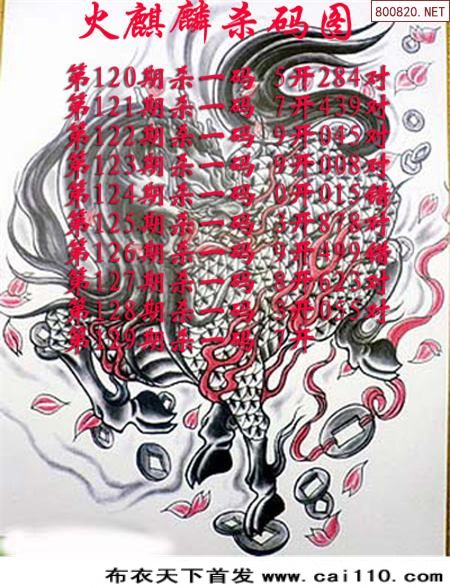 800820.NET
火麒麟杀码图
第120期杀一码 5开284对
第121期杀一码 7开439对
第122期杀一码 9开045对
第123期杀一码 9开008对
第124期杀一码 0开015错
第125期杀一码 3开878对
第126期杀一码 9开499错
第127期杀一码 8开623对
第128期杀一码 开055对
第129期杀一码 开
布衣天下首发 www.cai110.com